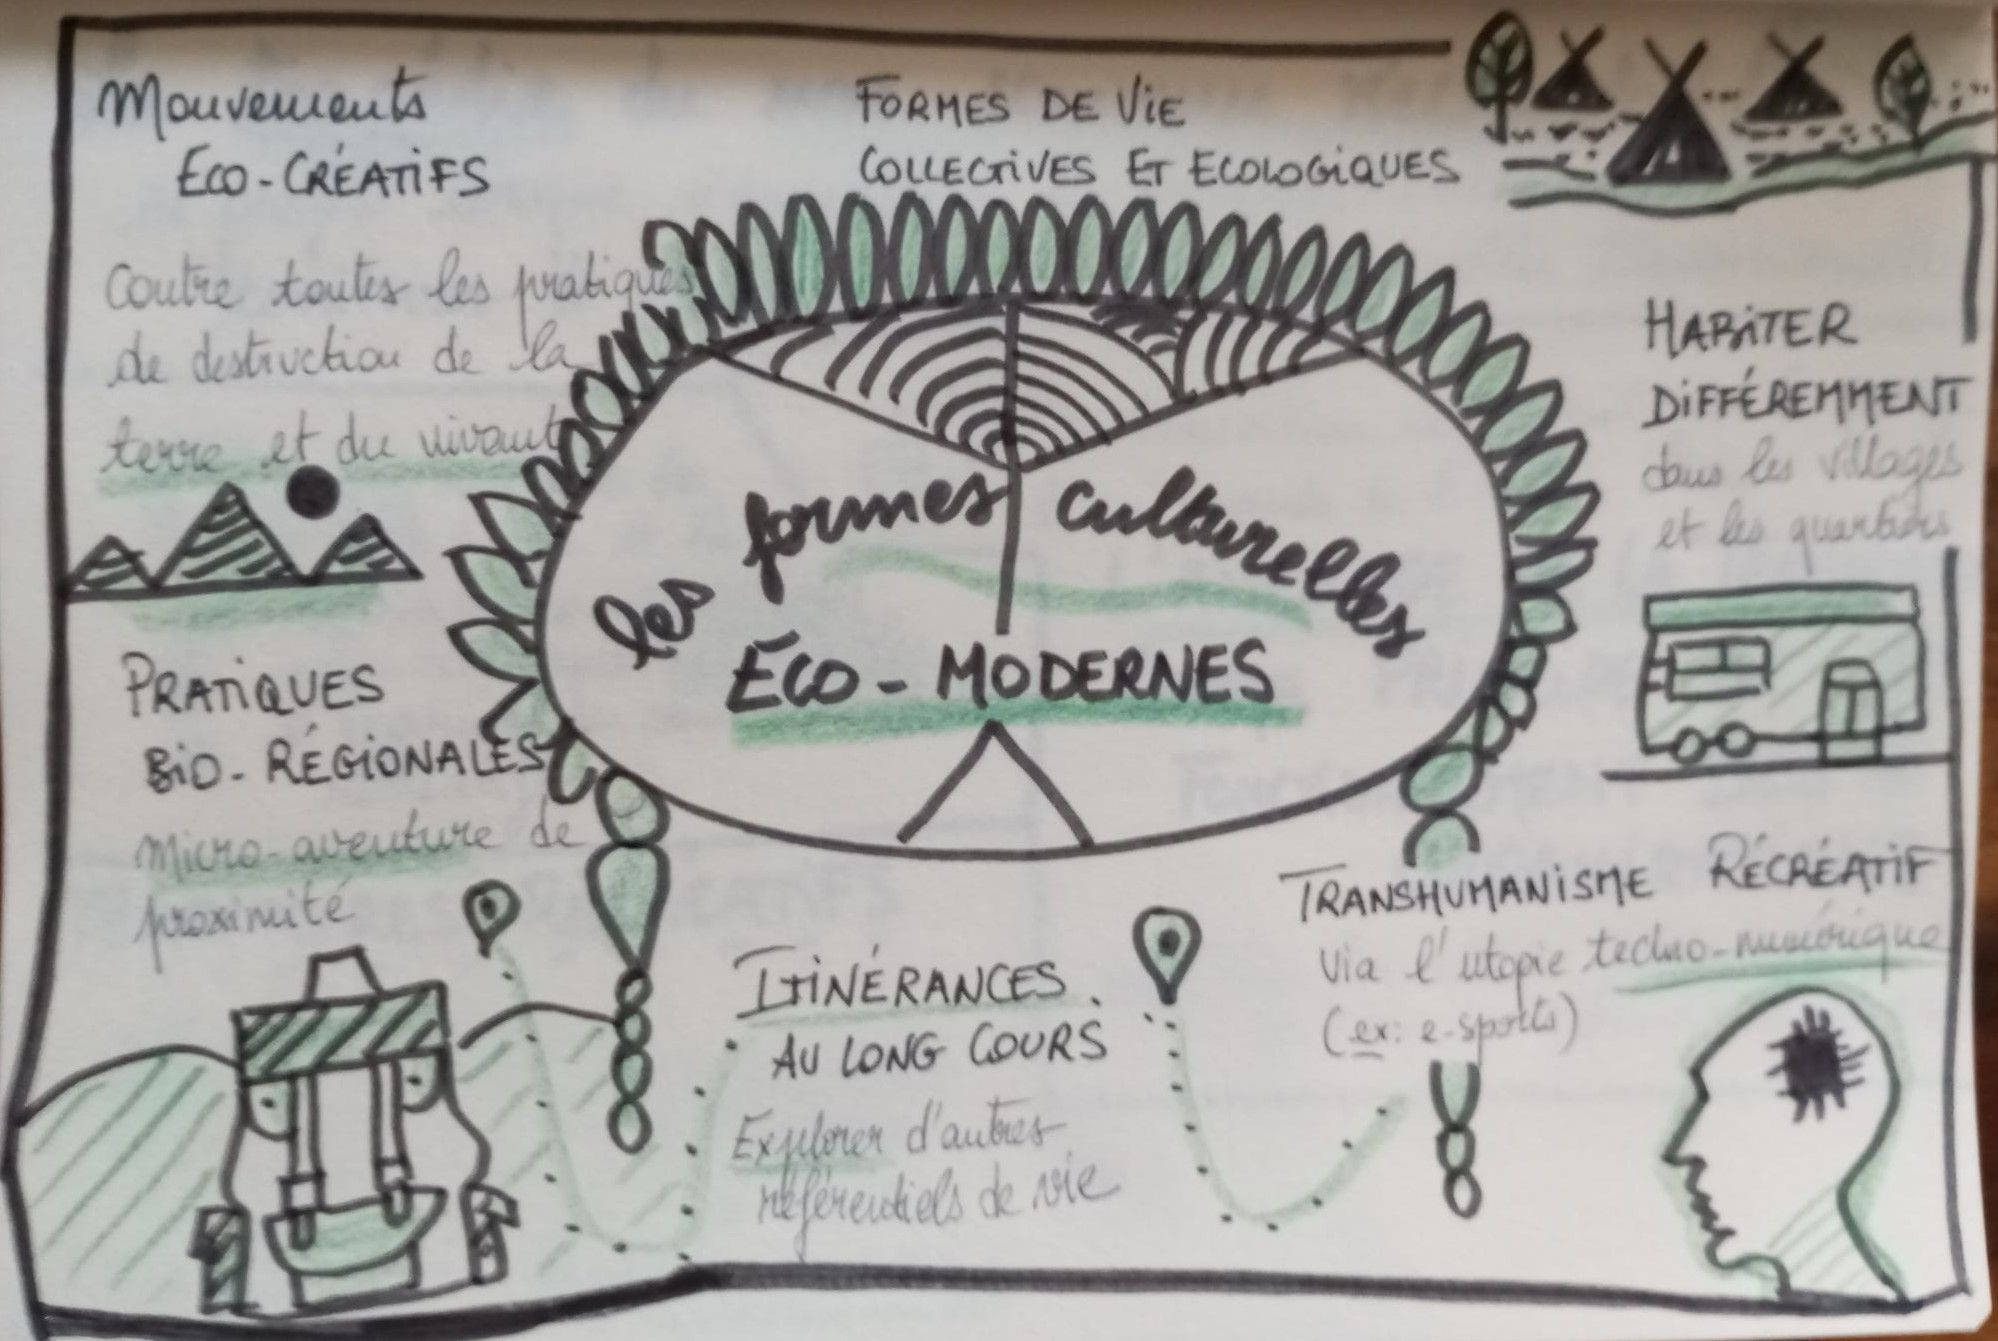 Mouvements
ECO-CRÉATIFS
Contre toutes les pratiques
de destruction de la
terre et du vivant
FORMES DE ViE
COLLECTIVES ET ECOLOGIQUES
HABiTER
DiFFÉREMMENT
dans les villages
et les quartiers
les formes culturelles
ECO-MODERNES
PRATiQUES
BiO-RÉGIONALES
Micro-aventure de
proximité
ITiNÉRANCES
AU LONG COURS
Explorer d'autres
référentiels de vie
TRANSHUMANISME RÉCRÉATiF
Via l'utopie techno-numérique
(ex: e-sports)